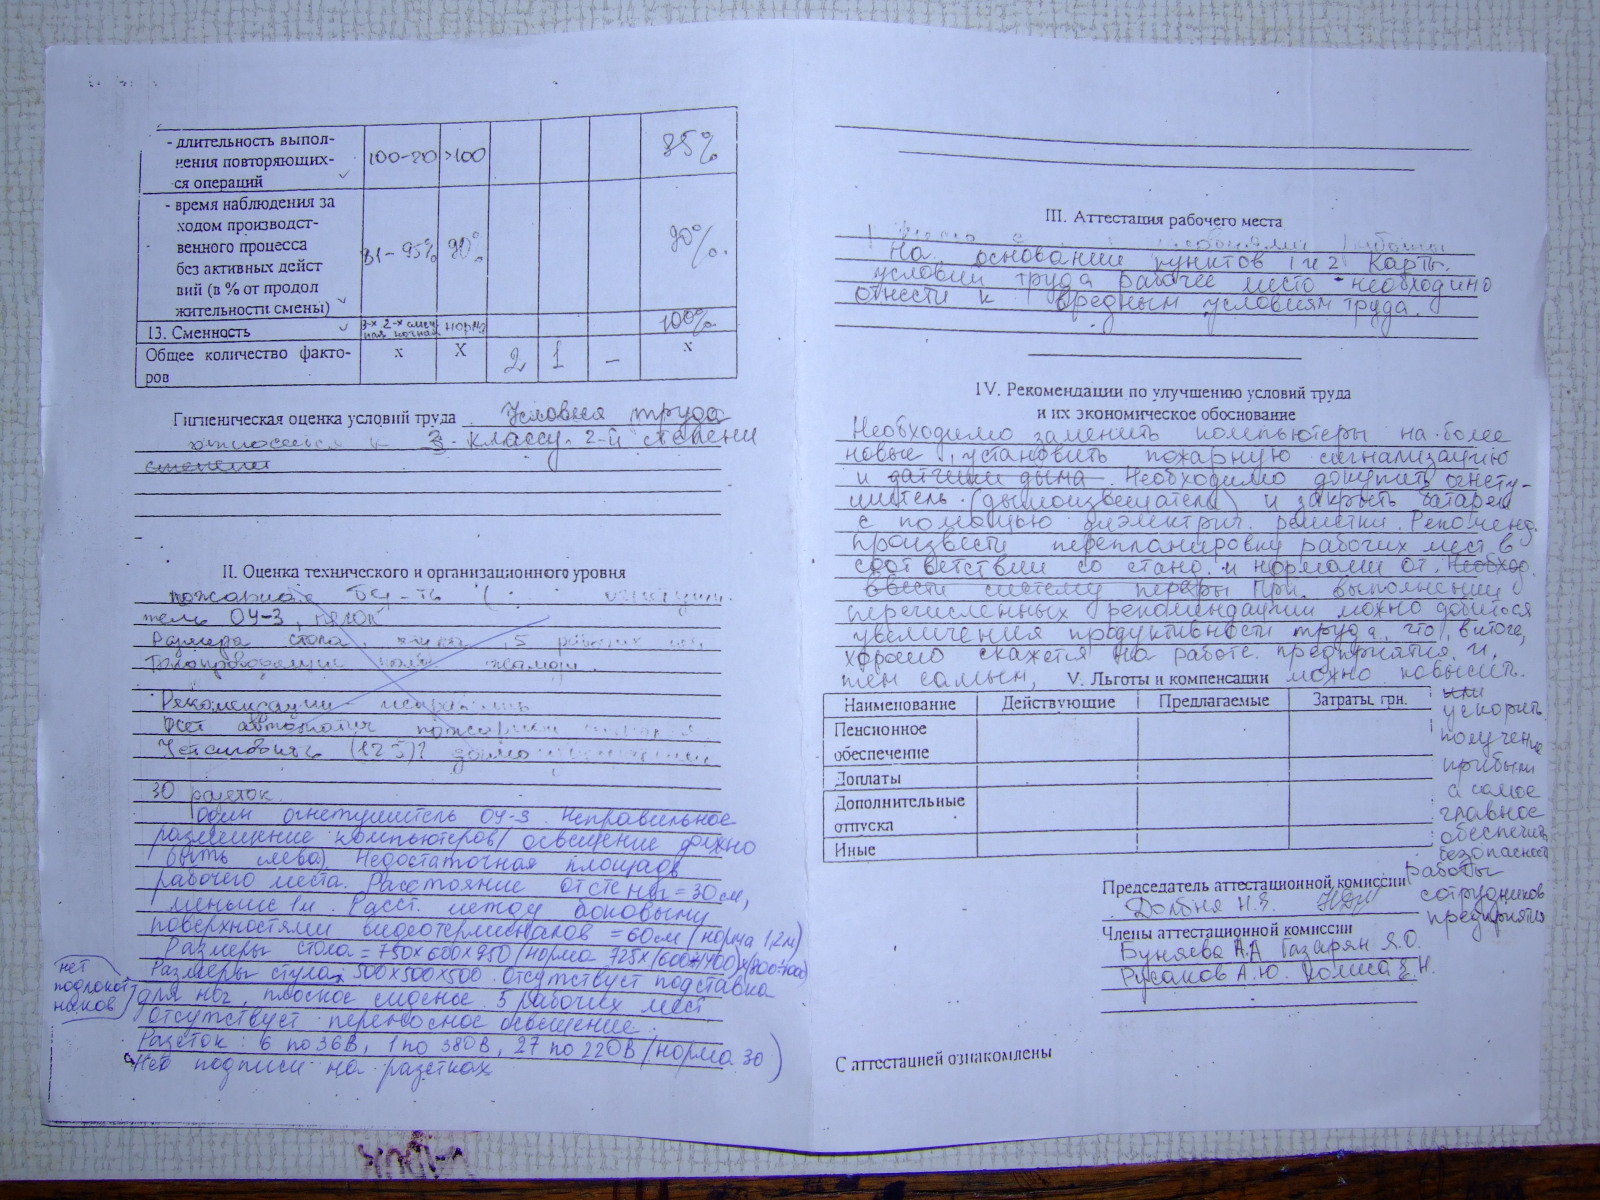 - длительность выпол-
нения повторяющих-
ся операций
100-20 >100 85%
- время наблюдения за
ходом производст-
венного процесса
без активных дейст
вий (в % от продол
жительности смены)
81-95% 90% 90%.
13. Сменность
100%
Общее количество факто-
ров
х X 2 1 - х
Гигиеническая оценка условий труда Условия труда
относятся к 3 классу 2-й степени
степени
II. Оценка технического и организационного уровня
пожарная
тель ОУ-3,
Размера стола 5 рабочих
Рекомендации
Нет
Установить
30 розеток
один огнетушитель ОУ-3. Неправильное
размещение компьютеров (освещение должно
быть слева) Недостаточная площадь
рабочего места. Расстояние от стены = 30 см,
меньше 1м. Расст. между боковыми
поверхностями видеотерминалов = 60см (норма 1,2м)
Размеры стола = 750х600х950 (норма 725х(600÷1400)х(800÷1000)
Размеры стула 500х500х500. Отсутствует подставка
нет
подлокот
ников
для ног, плоское сиденье. 5 рабочих мест.
Отсутствует переносное освещение.
Розеток: 6 по 36В, 1 по 380В, 27 по 220В (норма 30)
подписи на розетках
III. Аттестация рабочего места
На основании пунктов 1 и 2 Карты
условий труда рабочее место необходимо
отнести к вредным условиям труда.
IV. Рекомендации по улучшению условий труда
и их экономическое обоснование
Необходимо заменить компьютеры на более
новые, установить пожарную сигнализацию
и датчики дыма. Необходимо докупить огнету-
шитель (дымоизвещатели) и закрыть батареи
с помощью диэлектрич. решетки. Рекоменд.
произвести перепланировку рабочих мест в
соответствии со станд. и нормами от. Необход.
ввести систему При выполнении
перечисленных рекомендаций можно добиться
увеличения продуктивности труда, что, в итоге,
хорошо скажется на работе предприятия и,
тем самым, можно повысить
V. Льготы и компенсации
или
ускорить
получение
прибыли
а самое
главное
обеспечить
безопасность
работы
сотрудников
предприятия
Наименование Действующие Предлагаемые Затраты, грн.
Пенсионное
обеспечение
Доплаты
Дополнительные
отпуска
Иные
Председатель аттестационной комиссии
Долбня Н.В.
Члены аттестационной комиссии
Буняева А.А Газарян Я.О.
Русаков А.Ю.
С аттестацией ознакомлены